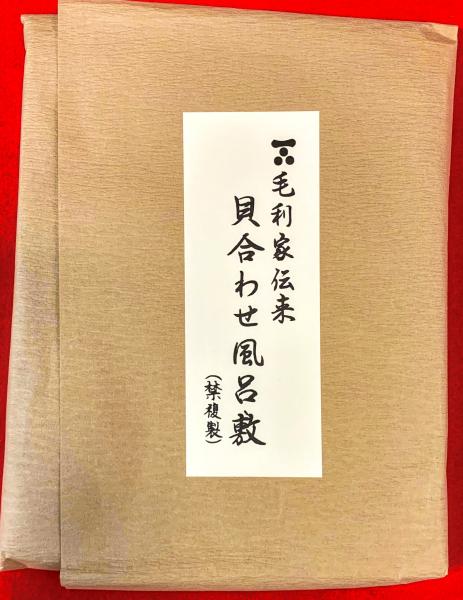 毛利家伝来
貝合わせ風呂敷
(禁複製)